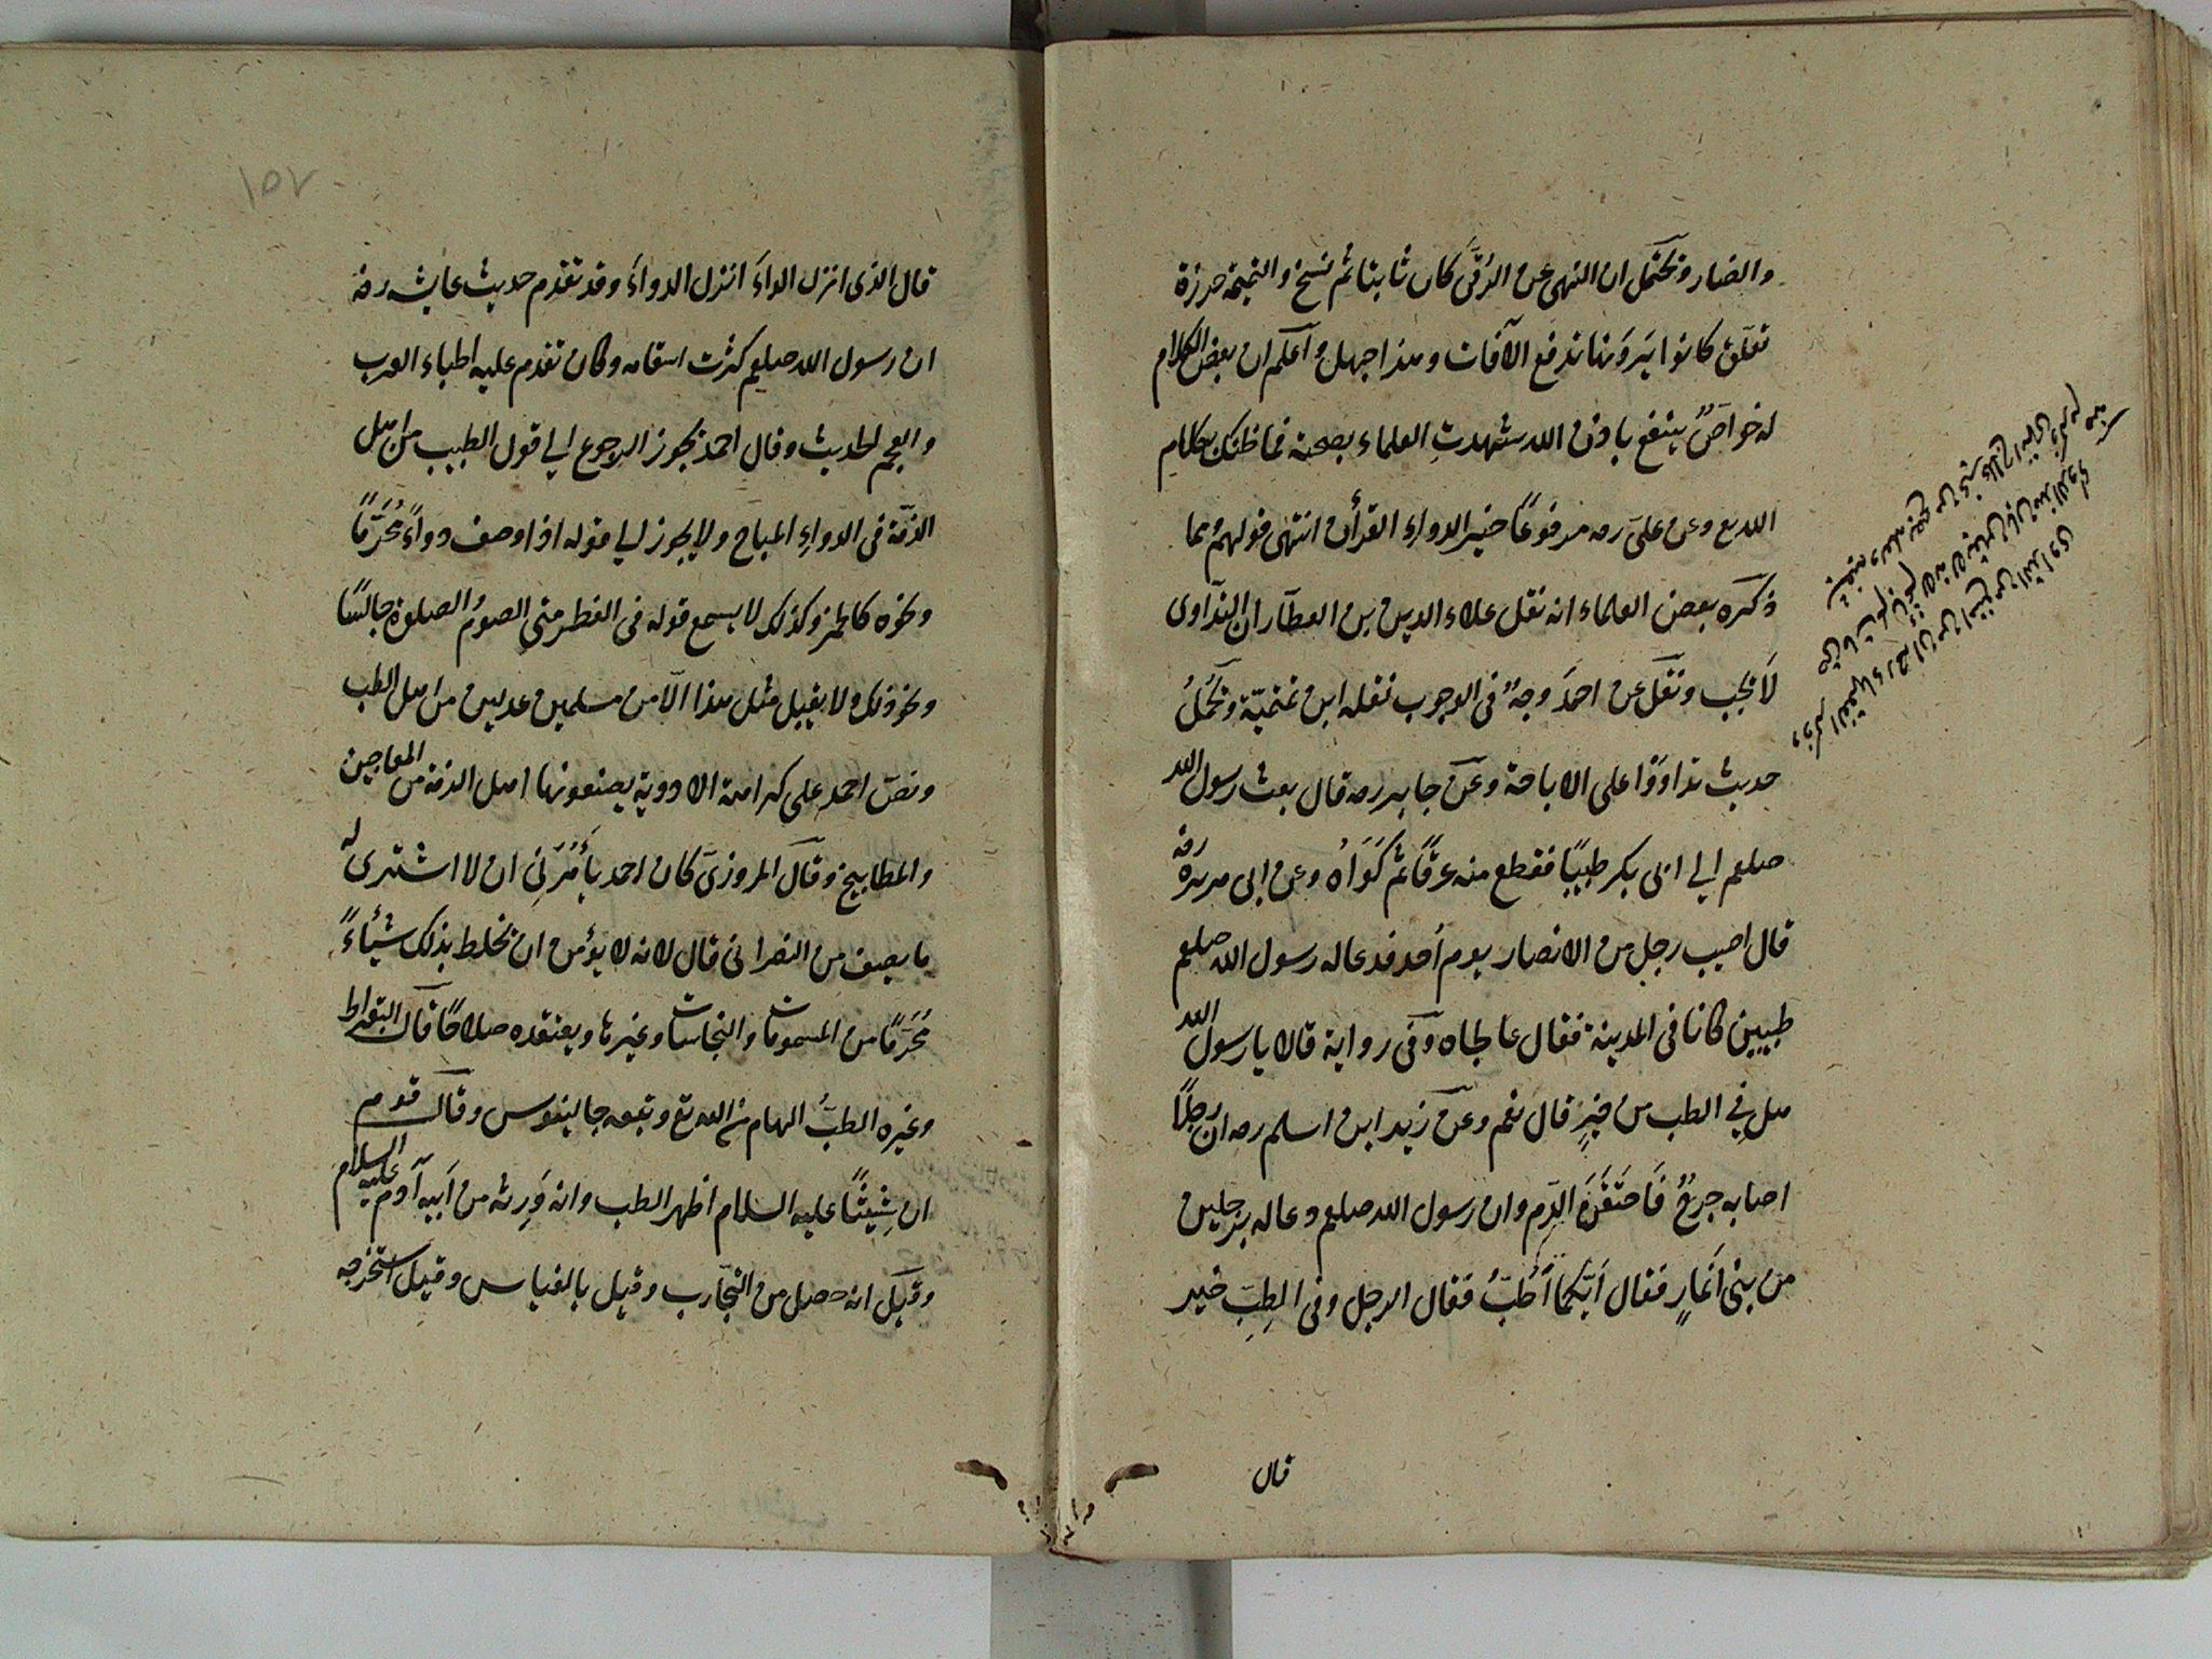 والضار ونحتمل ان النهى عن الرُقَى كان ثابتا ثم نسخ والتميمة خرزة
تعلّق كانوا يَرَونها تدفع الآفات وهذا جهل وآعلم ان بعض الكلام
له خواصٌ ينتفع باذن الله شهدتِ العلماء بصحته فما ظنك بكلامِ
الله تع وعن علىّ رضه مرفوعًا خير الدواءِ القرأن انتهى قولهم مما
ذكره بعض العلماء انه نقل علاء الدين بن العطآر ان التداوى
لَا يجب ونقل عن احمدَ وجهٌ فى الوجوب نقله ابن تمنميّة ونحملُ
حديث تداوَوْا على الاباحة وعن جابر رضه قال بعث رسول الله
صلعم الى ابى بكر طبيبًا فقطع منه عرقًا ثم كَوَاهُ وعن ابى هريرة رضه
قال اصيب رجل من الانصار يوم اُحد فدعا له رسول الله صلعم
طبيبين كانا فى المدينة فقال عالجاه وفى رواية قالا يا رسول الله
هل فِي الطب من خيرٍ قال نعم وعن زيد ابن اسلم رضه ان رجلًا
اصابه جرحٌ فَاحتَقَنَ الدّم وان رسول الله صلعم دعا له برجلين
من بنى اَنمارٍ فقال اَيّكما اَطَبُّ فقال الرجل وفى الطِبِّ خير
قال
وذكر الفقهاء رضه ان من امتنع من التداوى
حتى مات لم يأثم لانه لا يقين بان هذا الدواء
يشفيه ولعله يصح من غير علاج انتهى
١٥٧
قال الذى انزل الداءَ انزل الدواءَ وقد تقدم حديث عايشه رضه
ان رسول الله صلعم كثرت اسقامه وكان تقدم عليه اطباء العرب
والعجم الحديث وقال احمد يجوز الرجوع الى قول الطبيب من اهل
الذمّة فى الدواءِ المباح ولا يجوز ليا قوله اذا وصف دواءً مُحَرَّمًا
ونحوه كالخمر وكذلك لا يسمع قوله فى الفطر متى الصومُ الصلوة جالسًا
ونحو ذلك ولا يقبل مثل هذا الّا من مسلمين عدلين من اهل الطب
ونصّ احمد على كراهة الادوية يصنعونها اهل الذمة من المعاجين
والمطابيخ وقال المروزى كان احمد يأمُرَنِى ان لا اشترى له
ما يصيف من النصرانى قال لانه لا يؤمن ان يخلط بذلك شيئاءً
مُحَرَّمًا من المسمومات والنجاسات وغيرها ويعتقده صلاحًا قال البقراط
وغيره الطبُّ الهام من الله تع وتبعه جالينوس وقال قوم
ان شِيثًا عليه السلام اظهر الطب وانه وَرِثه من اَبيه آدم عليه السلام
وقيل انه حصل من التجارب وقيل بالقياس وقيل استخرجه